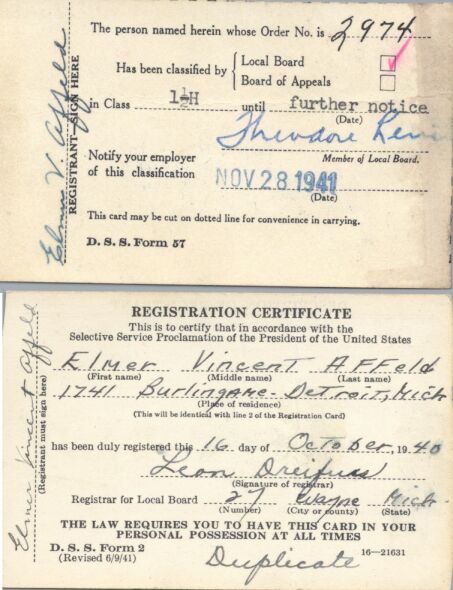 The person named herein whose Order No. is 2974
Has been classified by { Local Board
Board of Appeals
in Class 1½H until further notice
(Date)
Theodore Levi
Member of Local Board.
Notify your employer
of this classification NOV 28 1941
(Date)
This card may be cut on dotted line for convenience in carrying.
D. S. S. Form 57
Elmer V. Affeld
REGISTRANT—SIGN HERE
REGISTRATION CERTIFICATE
This is to certify that in accordance with the
Selective Service Proclamation of the President of the United States
Elmer Vincent Affeld
(First name) (Middle name) (Last name)
1741 Burlingame - Detroit, Mich
(Place of residence)
(This will be identical with line 2 of the Registration Card)
has been duly registered this 16 day of October, 1940
Leon Dreifuss
(Signature of registrar)
Registrar for Local Board 27 Wayne Mich.
(Number) (City or county) (State)
THE LAW REQUIRES YOU TO HAVE THIS CARD IN YOUR
PERSONAL POSSESSION AT ALL TIMES
D. S. S. Form 2
(Revised 6/9/41) Duplicate 16—21631
Elmer Vincent Affeld
(Registrant must sign here)